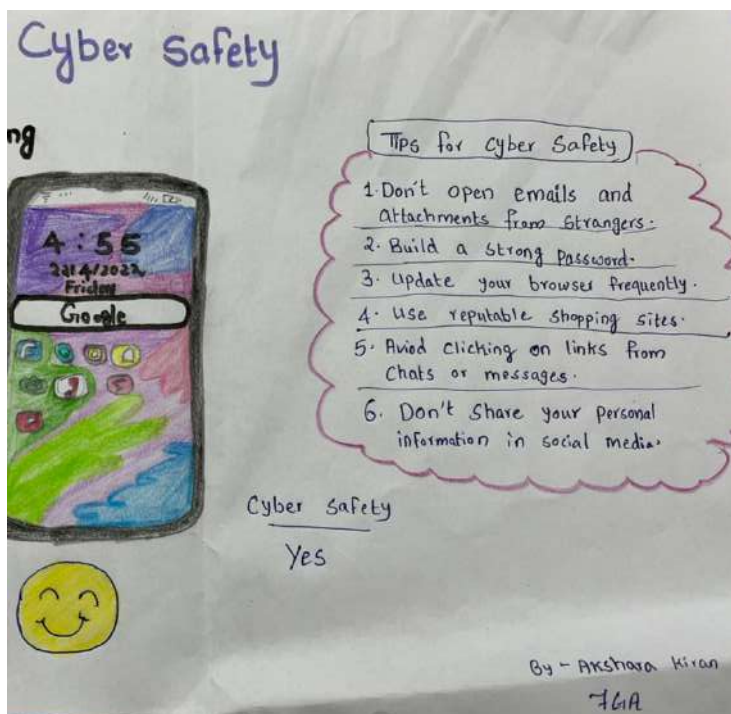 Cyber Safety
ng
4:55
22/4/2022
Friday
Google
Tips for Cyber Safety
1. Don't open emails and
attachments from strangers.
2. Build a strong password.
3. Update your browser frequently.
4. Use reputable shopping sites.
5. Aviod clicking on links from
chats or messages.
6. Don't share your personal
information in social media.
Cyber Safety
Yes
By - Akshara Kiran
7GA